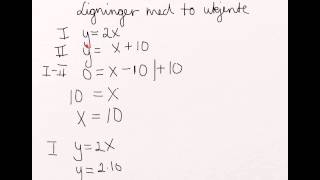 Ligninger med to ukjente
I y=2x
II y= x+10
I-II 0=x-10 |+10
10=x
x=10
I y=2x
y=2·10